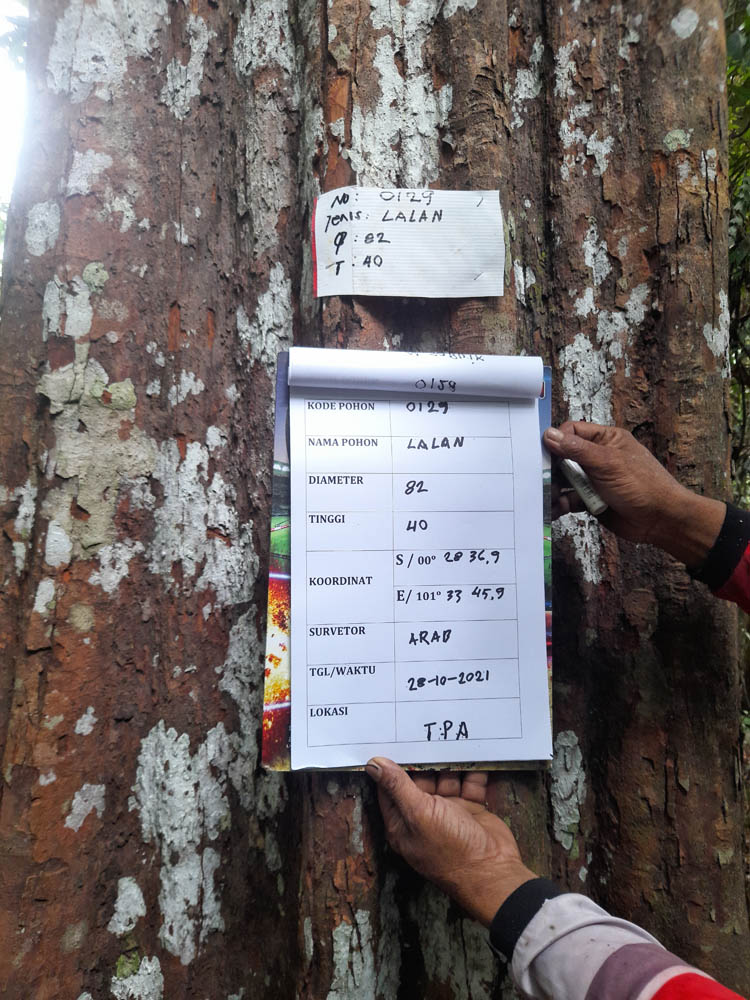 NO: 0129
JENIS: LALAN
φ: 82
T: 40
0159
KODE POHON 0129
NAMA POHON LALAN
DIAMETER 82
TINGGI 40
KOORDINAT S / 00° 28 36,9
E/ 101° 33 45,9
SURVETOR ARAB
TGL/WAKTU 28-10-2021
LOKASI T.PA